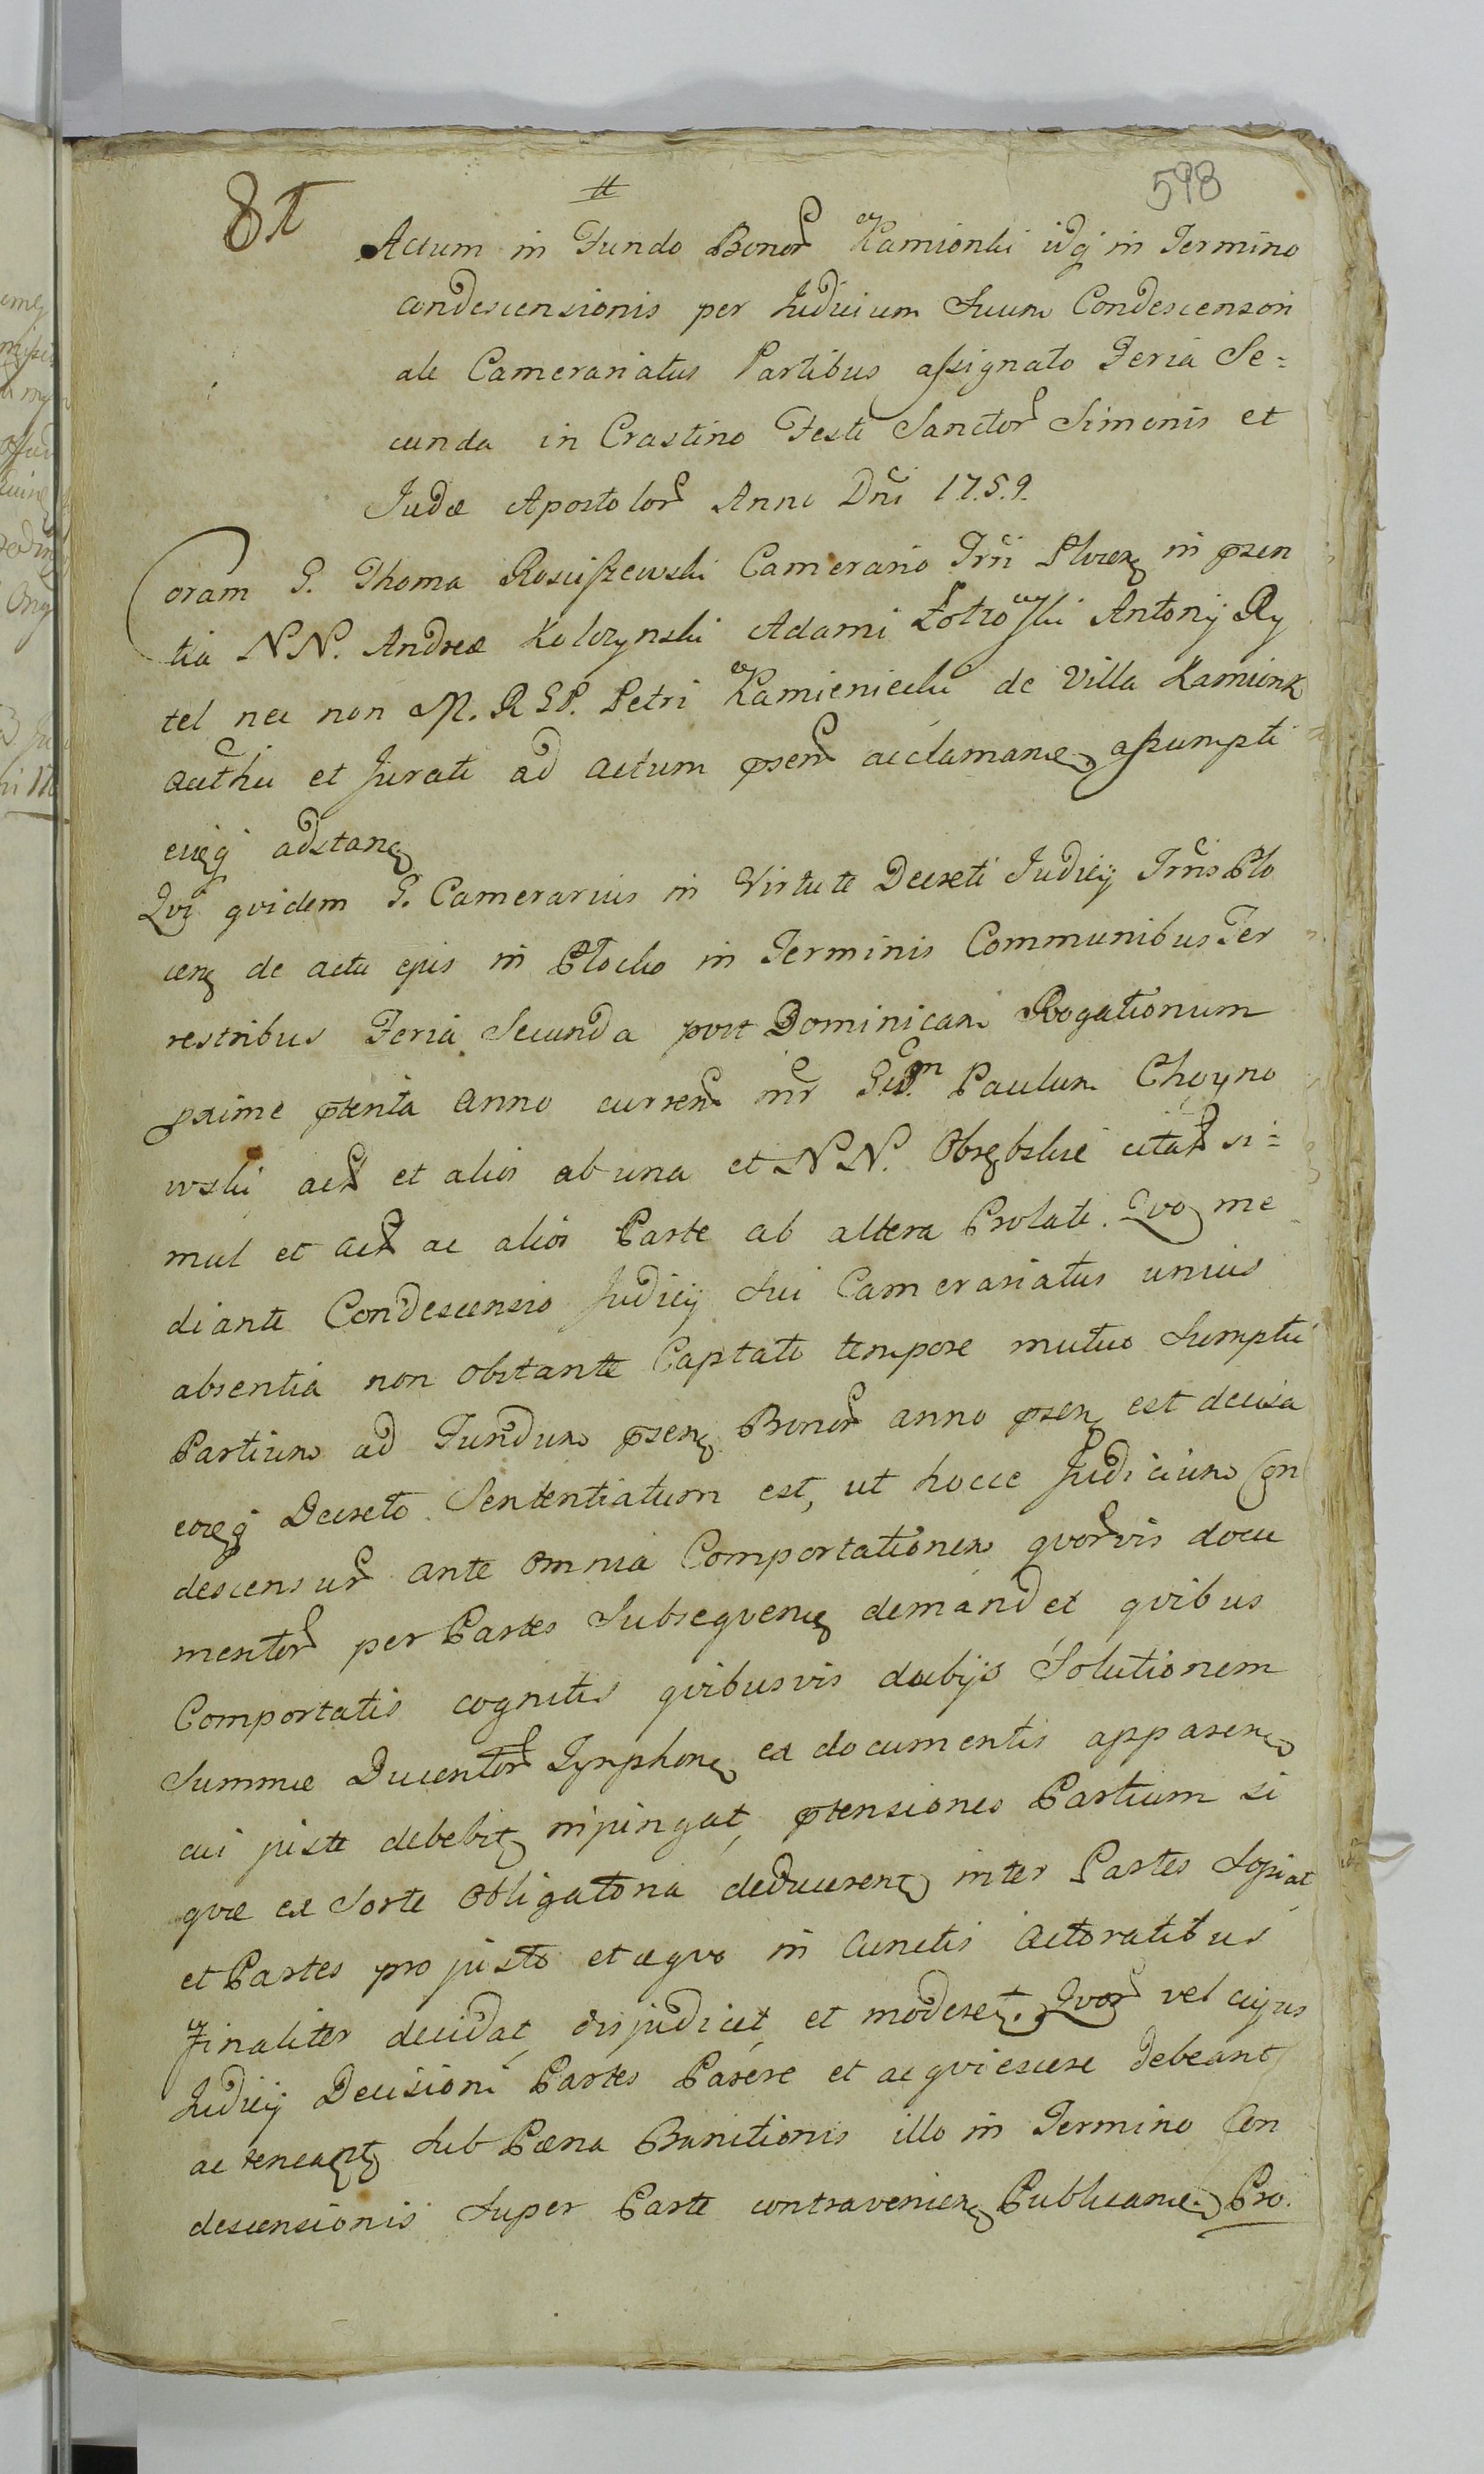 598
Actum in Fundo Bonor Kamionki idq in Termino
condescensionis per Judicium Suum Condescensori
ale Camerariatus Partibus assignato Feria Se=
cunda in Crastino Festi Sanctor Simonis et
Judæ Apostolor Anno Dni 1759.
Coram G. Thoma Rosciszewski Camerario Trri Plocen in psen
tia NN. Andreæ Kolczynski Adami Antonij Ry
tel nec non M. R GP. Petri Kamieniecki de Villa Kamionk
et Jurati ad actum psen acclamane assumpti
eiusq adstan
Qui quidem G. Camerarius in Virtute Decreti Judicij Trris Plo
cen de actu ejus in Plocko in Terminis Communibus Ter
restribus Feria Secunda post Dominicam Rogationum
proxime pterita anno curren inr Paulum Choyno
wski act et alios ab una et NN. Obrębskie citat si=
mul et act ac alios Parte ab altera Prolati. Quo me
diante Condescensio Judicij Sui Camerariatus unius
absentia non obstante Captato tempore mutuo Sumptu
Partium ad Fundum psen Bonor anno psen est decisa
eoq Decreto Sententiatum est, ut hocce Judicium Con
descensur ante omnia Comportationem quorvis docu
mentor per Partes Subsequen demandet quibus
Comportatis cognitis quibusvis dubijs Solutionem
Summæ Ducentor Tynphon ex documentis apparen
cui juste debebit injungat, ptensiones Partium si
quæ ex Sorte Obligatoria deducerent inter Partes Sopiat
et Partes pro justo et æquo in Cunctis Actoratibus
Finaliter decidat, disjudicet, et moderet. Quor vel cujus
Judicij Decisioni Partes Parere et acquiescere debeant
ac teneant Sub Pæna Banitionis illo in Termino Con
descensionis Super Parte contravenien Publicane. Pro.